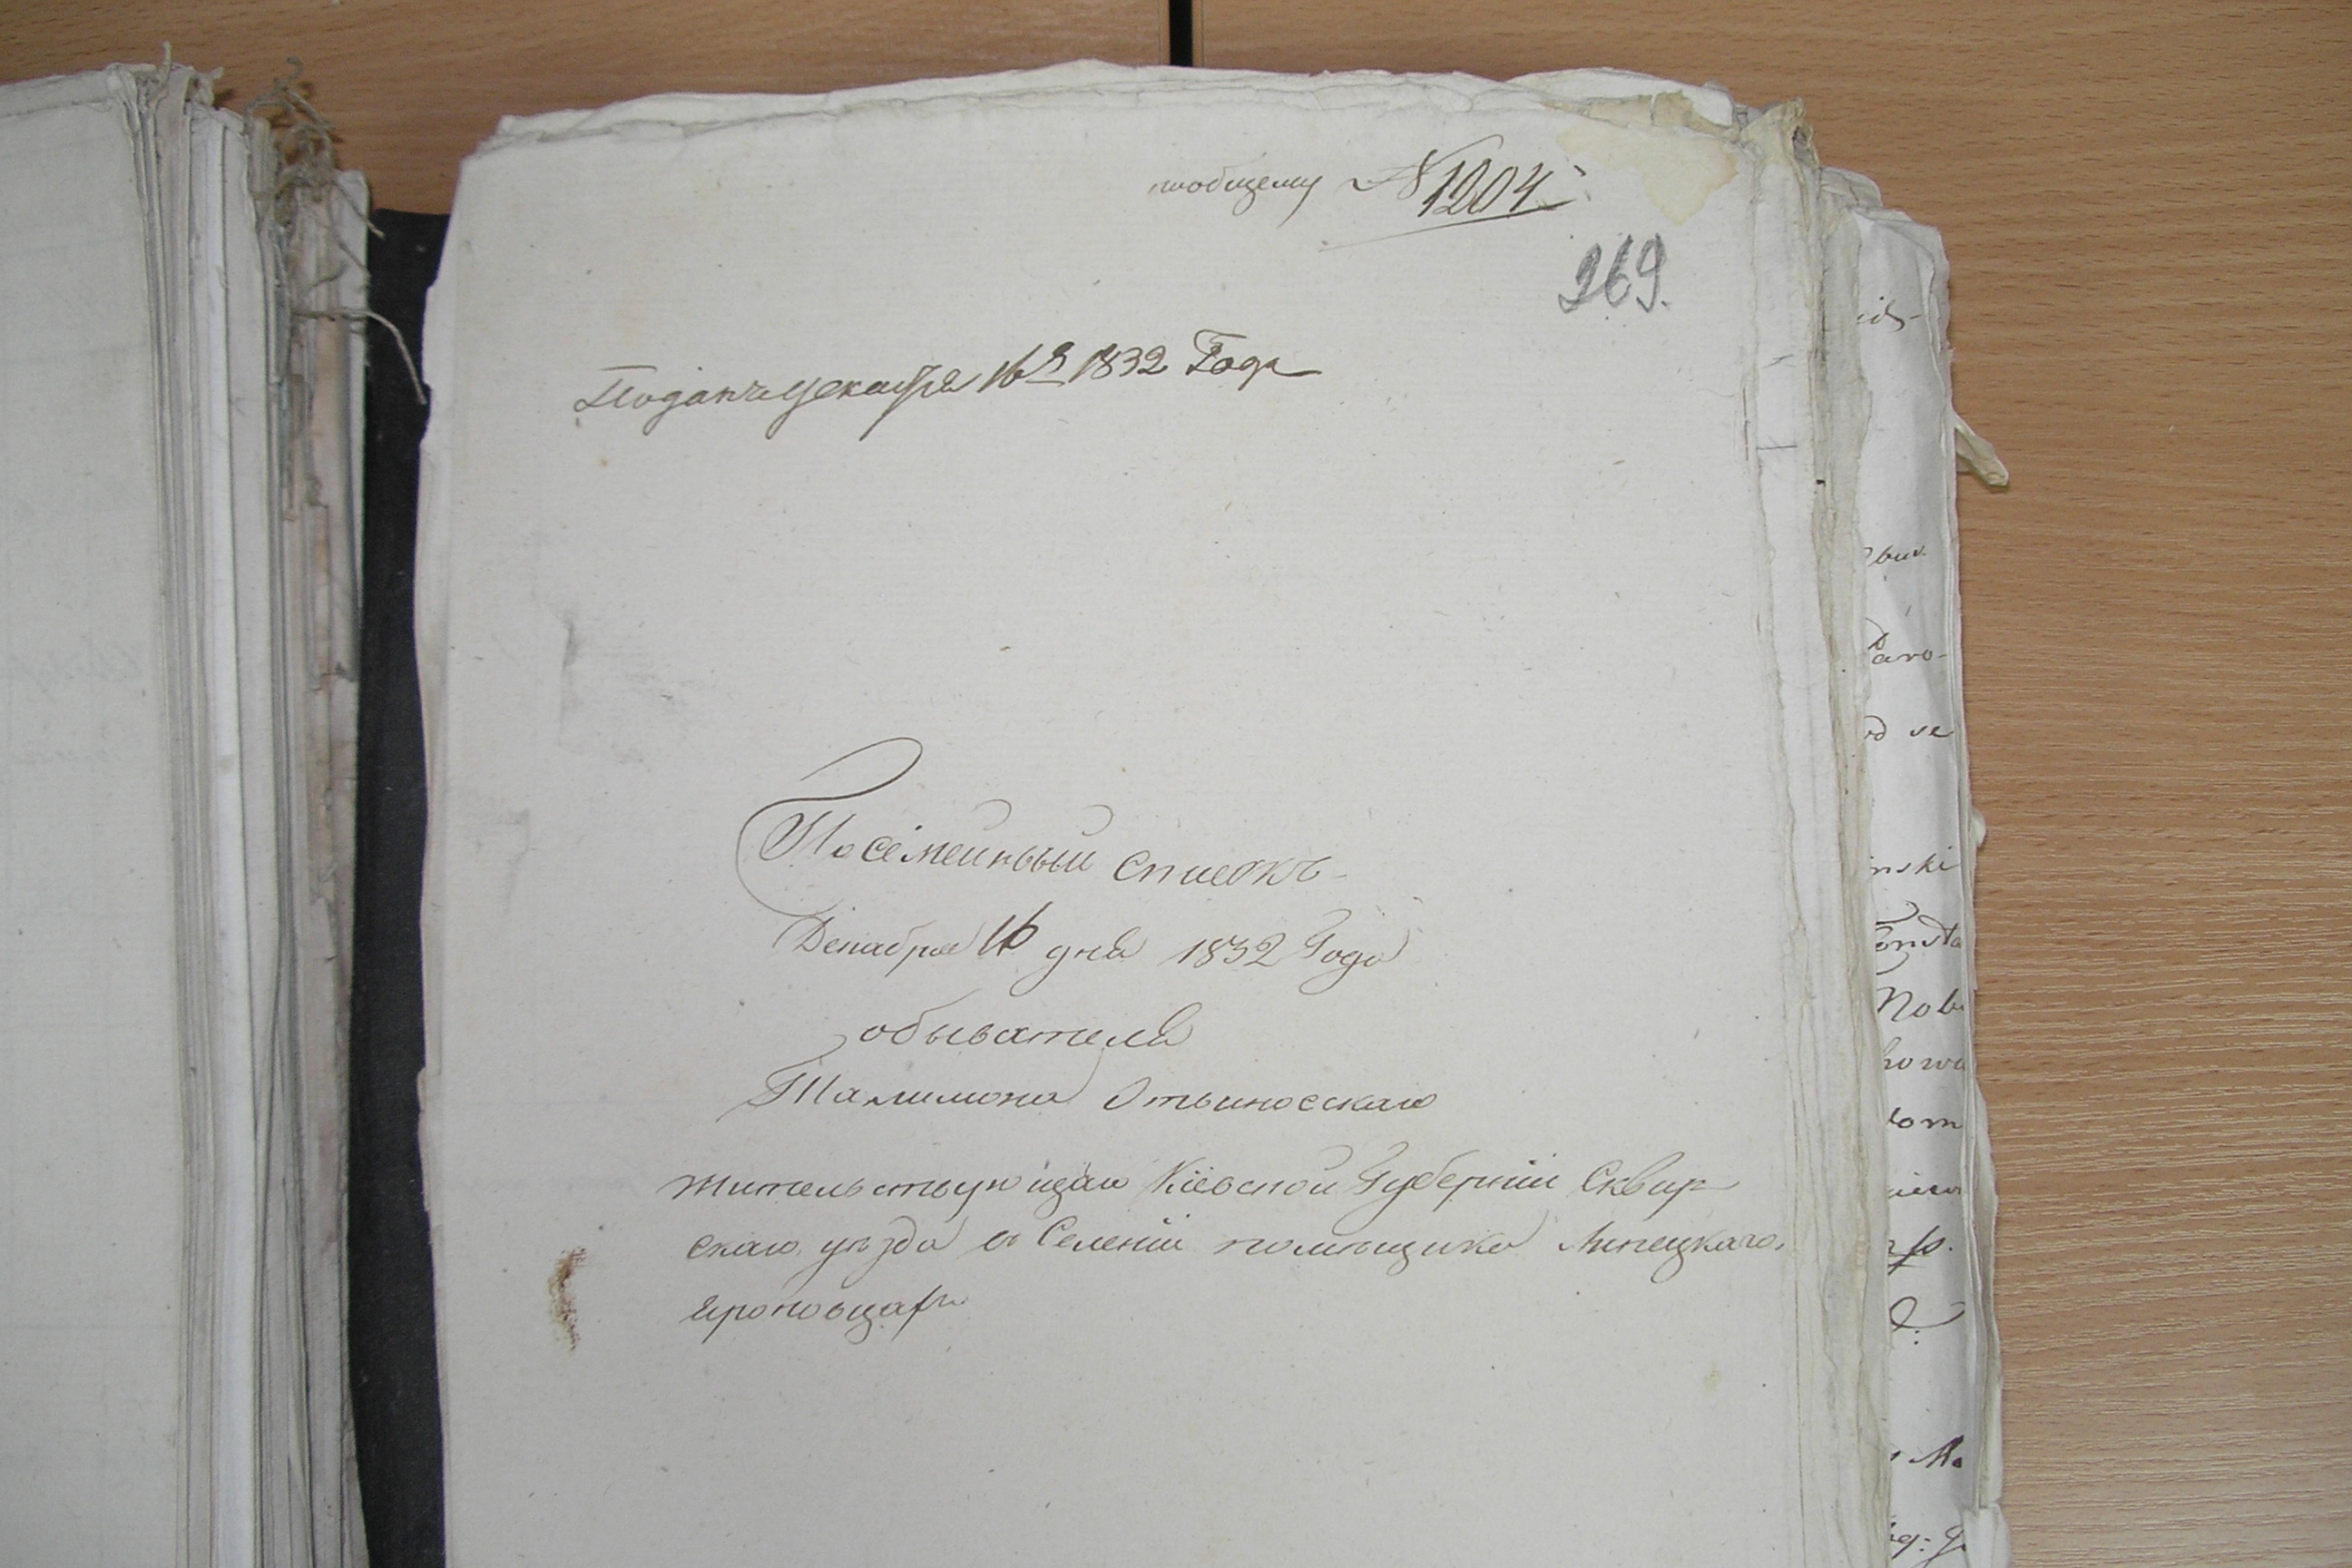 пообщему №1204
269.
Поданъ Декабря 16го 1832 Года
Посемейный списокъ
Декабря 16 дня 1832 Года
обывателя
Отвиновскаго
жительствующаго Кіевской Губерніи Сквир
скаго уѣзда въ Селеніи помѣщика Липецкаго